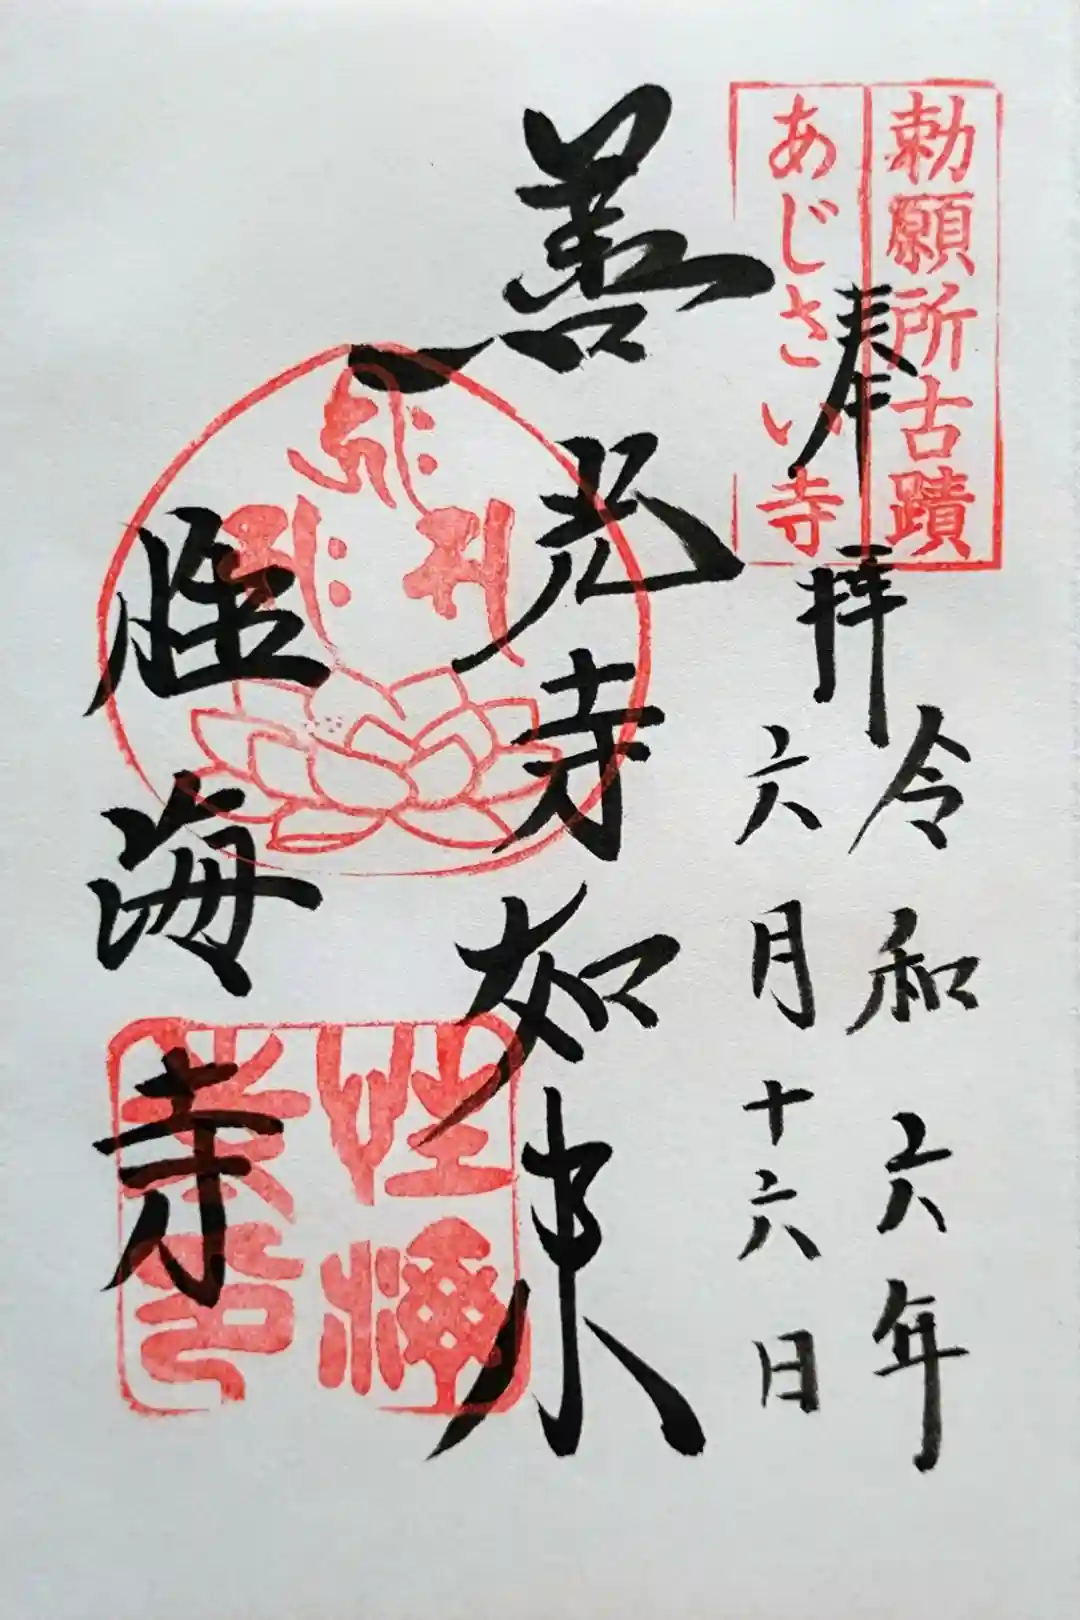 勅願所古蹟
あじさい寺
奉拝
令和六年
六月十六日
善光寺如来
性海寺
性海